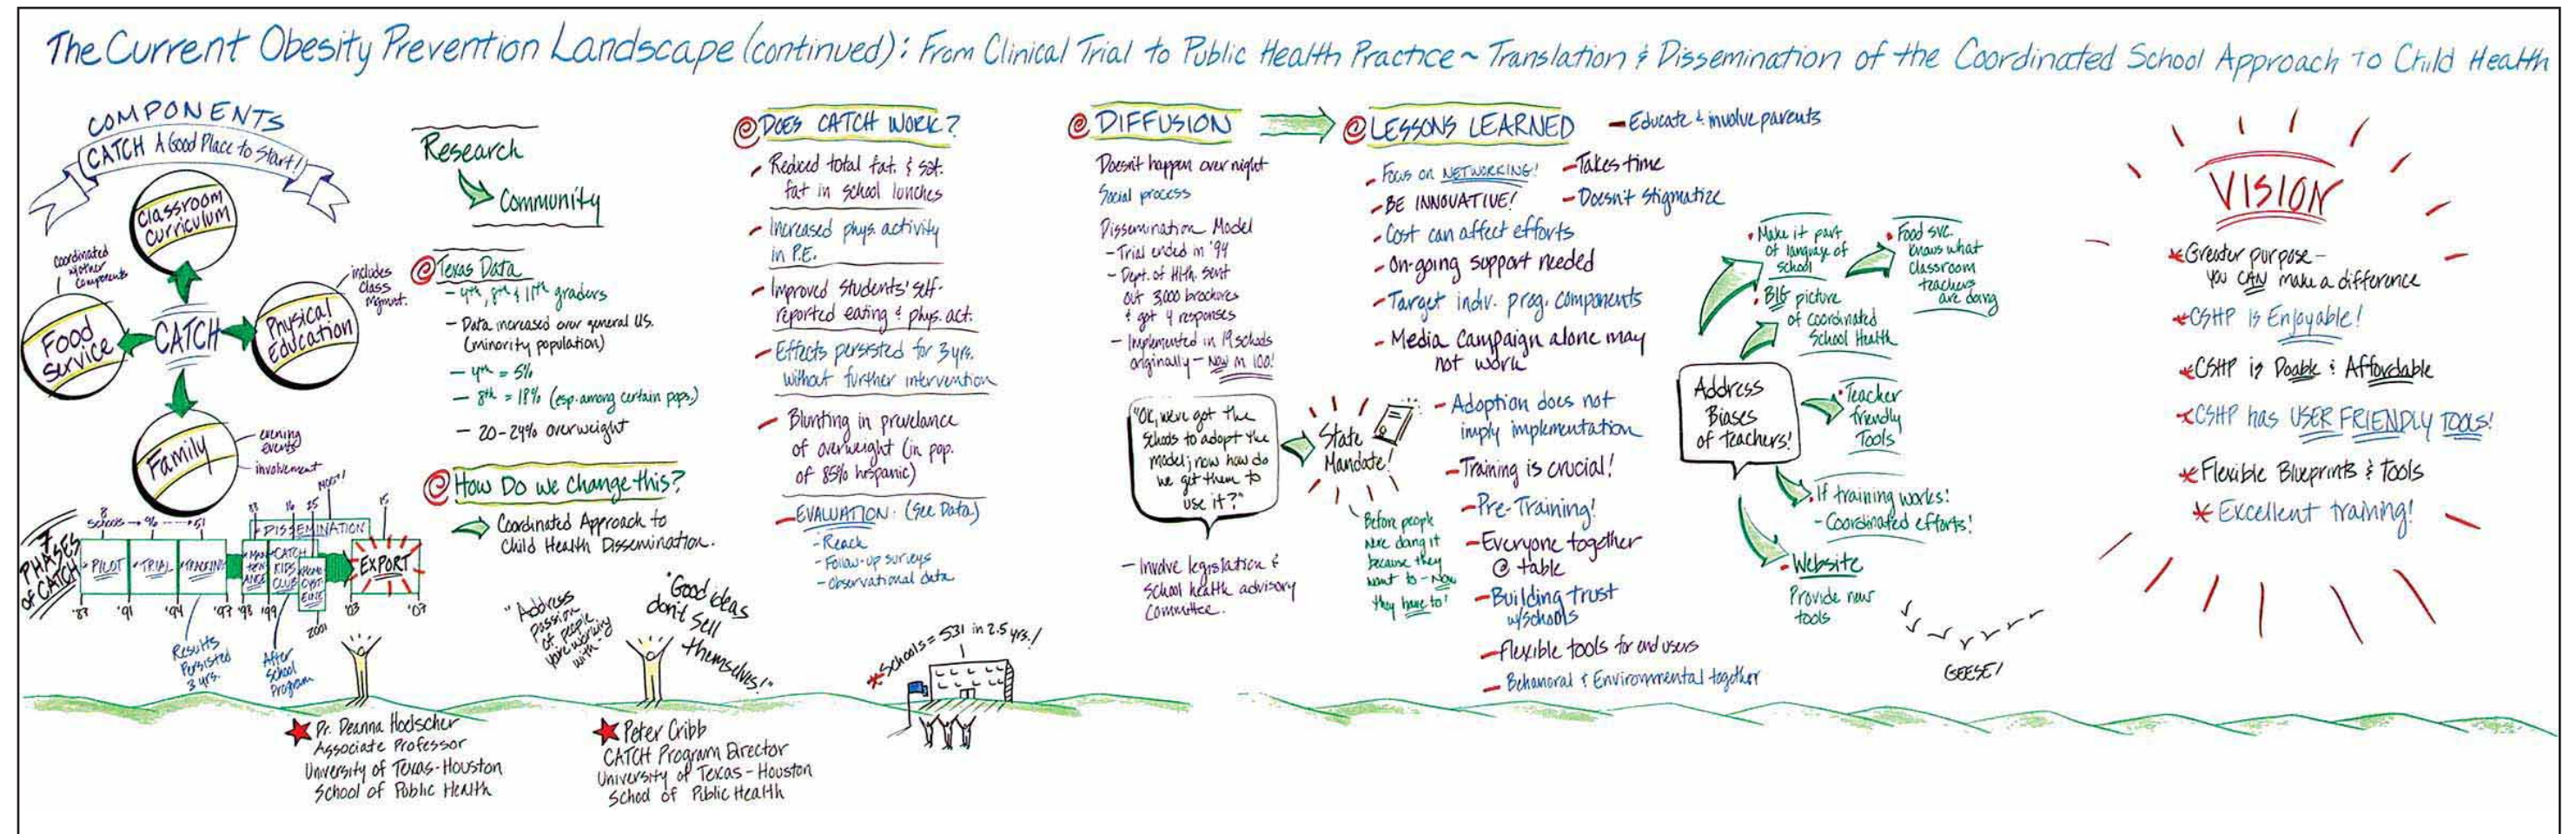 The Current Obesity Prevention Landscape (continued): From Clinical Trial to Public Health Practice ~ Translation & Dissemination of the Coordinated School Approach to Child Health
COMPONENTS
CATCH A Good Place to Start!
Classroom
Curriculum
Coordinated
w/other
components
Food
Service
CATCH
Physical
Education
includes
class
mgmnt.
Family
evening
events
involvement
7
PHASES
of CATCH
8
schools → 96 → 51
PILOT
TRIAL
TRACKING
DISSEMINATION
MAIN
TEN
ANCE
CATCH
KIDS
CLUB
EXPORT
'91
'94
'97
'98
'99
2001
'03
'07
Results
Persisted
3 yrs.
After
School
Program
Research
Community
Texas Data
- 4th, 8th & 11th graders
- Data increased over general U.S.
(minority population)
- 4th = 5%
- 8th = 18% (esp. among certain pops.)
- 20-24% overweight
How Do we change this?
Coordinated Approach to
Child Health Dissemination.
"Address
passion
of people
you're working
with"
"Good ideas
don't sell
themselves!"
Dr. Deanna Hoelscher
Associate Professor
University of Texas-Houston
School of Public Health
Peter Cribb
CATCH Program Director
University of Texas-Houston
School of Public Health
DOES CATCH WORK?
- Reduced total fat. & sat.
fat in school lunches
- Increased phys. activity
in P.E.
- Improved students' self-
reported eating & phys. act.
- Effects persisted for 3 yrs.
without further intervention
- Blunting in prevelance
of overweight (in pop.
of 85% hispanic)
- EVALUATION: (See Data)
- Reach
- Follow-up surveys
- Observational data
*Schools = 531 in 2.5 yrs.!
DIFFUSION
Doesn't happen over night
Social process
Dissemination Model
- Trial ended in '94
- Dept. of Hlth. sent
out 3,000 brochures
& got 4 responses
- Implemented in 19 schools
originally - Now in 100!
"OK, we've got the
schools to adopt the
model; now how do
we get them to
use it?"
State
Mandate!
Before people
were doing it
because they
want to - Now
they have to!
- Involve legislation &
school health advisory
Committee.
LESSONS LEARNED
- Educate & involve parents
- Focus on NETWORKING!
- Takes time
- BE INNOVATIVE!
- Doesn't Stigmatize
- Cost can affect efforts
- On-going support needed
- Target indiv. prog. components
- Media Campaign alone may
not work
- Adoption does not
imply implementation
- Training is crucial!
- Pre-Training!
- Everyone together
@ table
- Building trust
w/schools
- Flexible tools for end users
- Behavioral & Environmental together
Address
Biases
of teachers!
• Make it part
of language of
school
• Food svc.
knows what
classroom
teachers
are doing
• BIG picture
of coordinated
School Health
• Teacher
friendly
Tools
• If training works!
- Coordinated efforts!
- Website
Provide new
tools
GEESE!
VISION
* Greater purpose -
you CAN make a difference
* CSHP is Enjoyable!
* CSHP is Doable & Affordable
* CSHP has USER FRIENDLY TOOLS!
* Flexible Blueprints & Tools
* Excellent training!